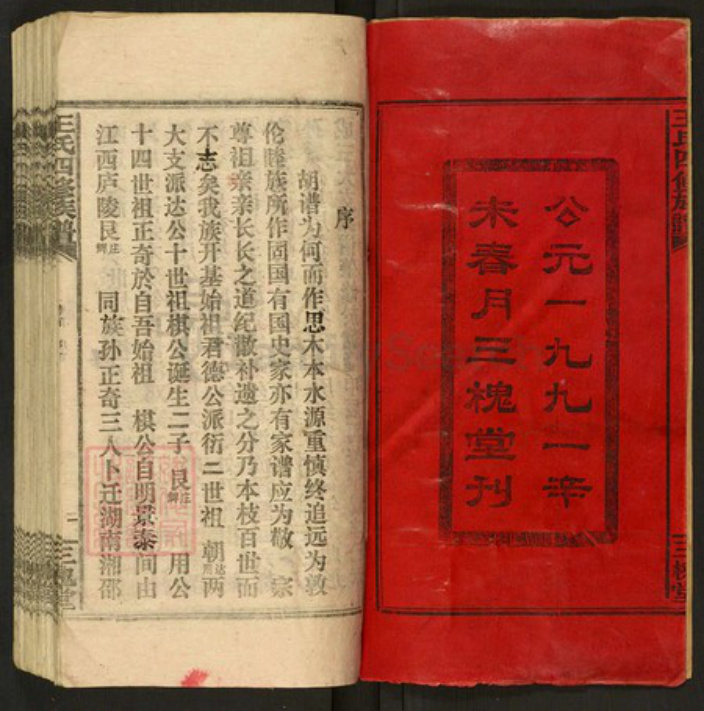 王氏四修族谱
公元一九九一辛
未春月三槐堂刊
三槐堂
序
胡谱为何而作思木本水源重慎终追远为敦
伦睦族所作固国有国史家亦有家谱应为敬 宗
尊祖亲亲长长之道纪散补遗之分乃本枝百世而
不志矣我族开基始祖君德公派衍二世祖 朝达用两
大支派达公十世祖棋公诞生二子 良庄卿 用公
十四世祖正奇於自吾始祖 棋公自明景泰间由
江西庐陵良庄卿 同族孙正奇三人卜迁湖南湘邵
王氏四修族谱
一
三槐堂